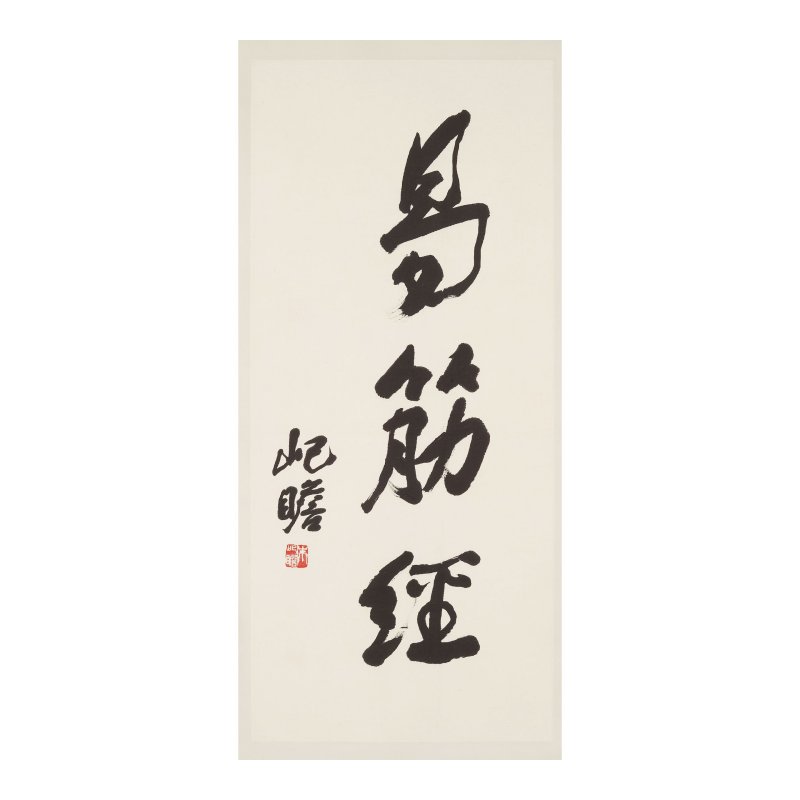 易筋經
屺瞻